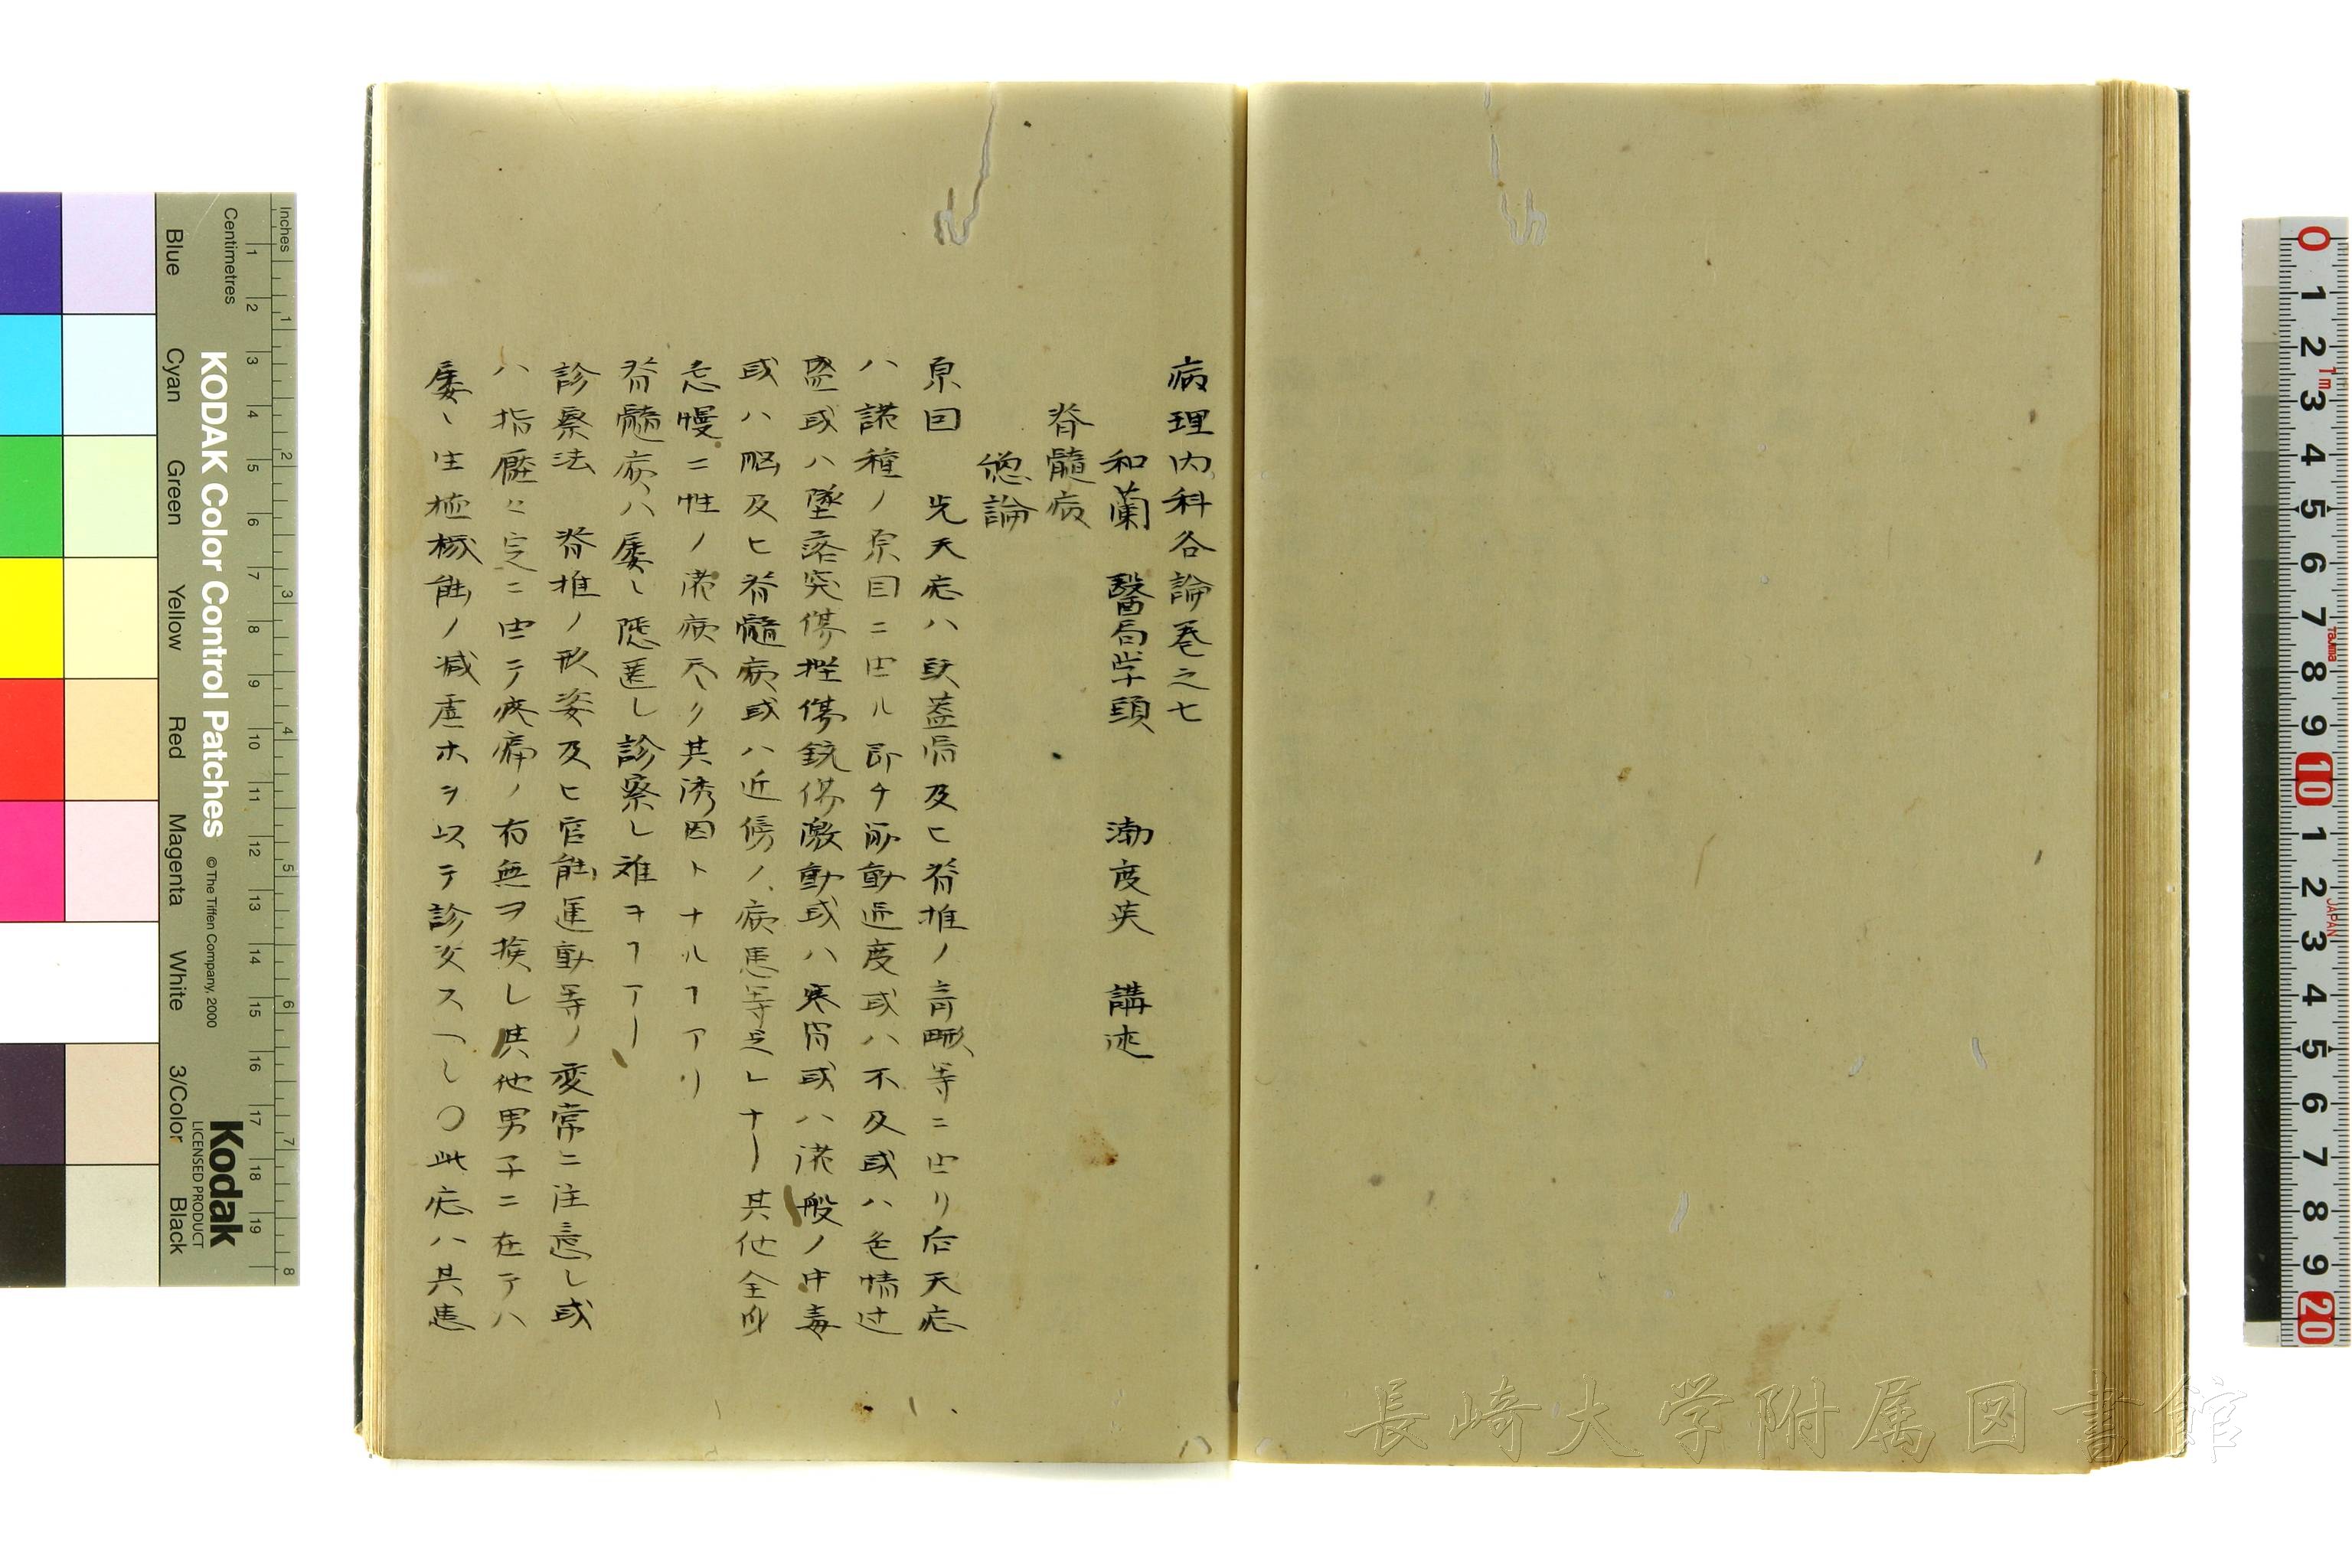 病理内科各論巻之七
和蘭 醫局学頭 満度英 講述
脊髓病
總論
原因 先天症ハ頭蓋骨及ヒ脊椎ノ畸形等ニ由リ后天症
ハ諸種ノ原因ニ由ル即チ運動過度或ハ不及或ハ色情过
盛或ハ墜落突傷挫傷銃傷激動或ハ寒冒或ハ諸般ノ中毒
或ハ脳及ヒ脊髓病或ハ近傍ノ病患等是レナリ其他全身
急慢二性ノ諸病尽ク其誘因トナルヿアリ
脊髓病ハ屡〻隠匿し診察し難キヿアリ
診察法 脊椎ノ形姿及ヒ官能運動等ノ変常ニ注意し或
ハ指壓ニ由テ疼痛ノ有無ヲ候し其他男子ニ在テハ
屡〻生殖機能ノ減虚ホヲ以テ診定スヘし〇此症ハ其患
KODAK Color Control Patches
© The Tiffen Company, 2000
Kodak
LICENSED PRODUCT
Inches 1 2 3 4 5 6 7 8
Centimetres 1 2 3 4 5 6 7 8 9 10 11 12 13 14 15 16 17 18 19
Blue Cyan Green Yellow Red Magenta White 3/Color Black
0 1 2 3 4 5 6 7 8 9 10 1 2 3 4 5 6 7 8 9 20
1m
Tajima
JAPAN
長崎大学附属図書館